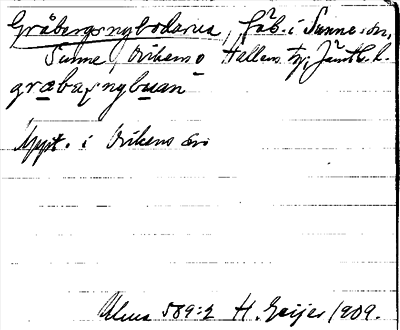 Gråbergsnybodarna, fäb. i Sunne sn,
Sunne, Ovikens o Hallens tg, Jämtl. l.
grabaʂnybuan
Uppt. i Ovikens sn
Ulma 589:2 H. Geijer 1909.